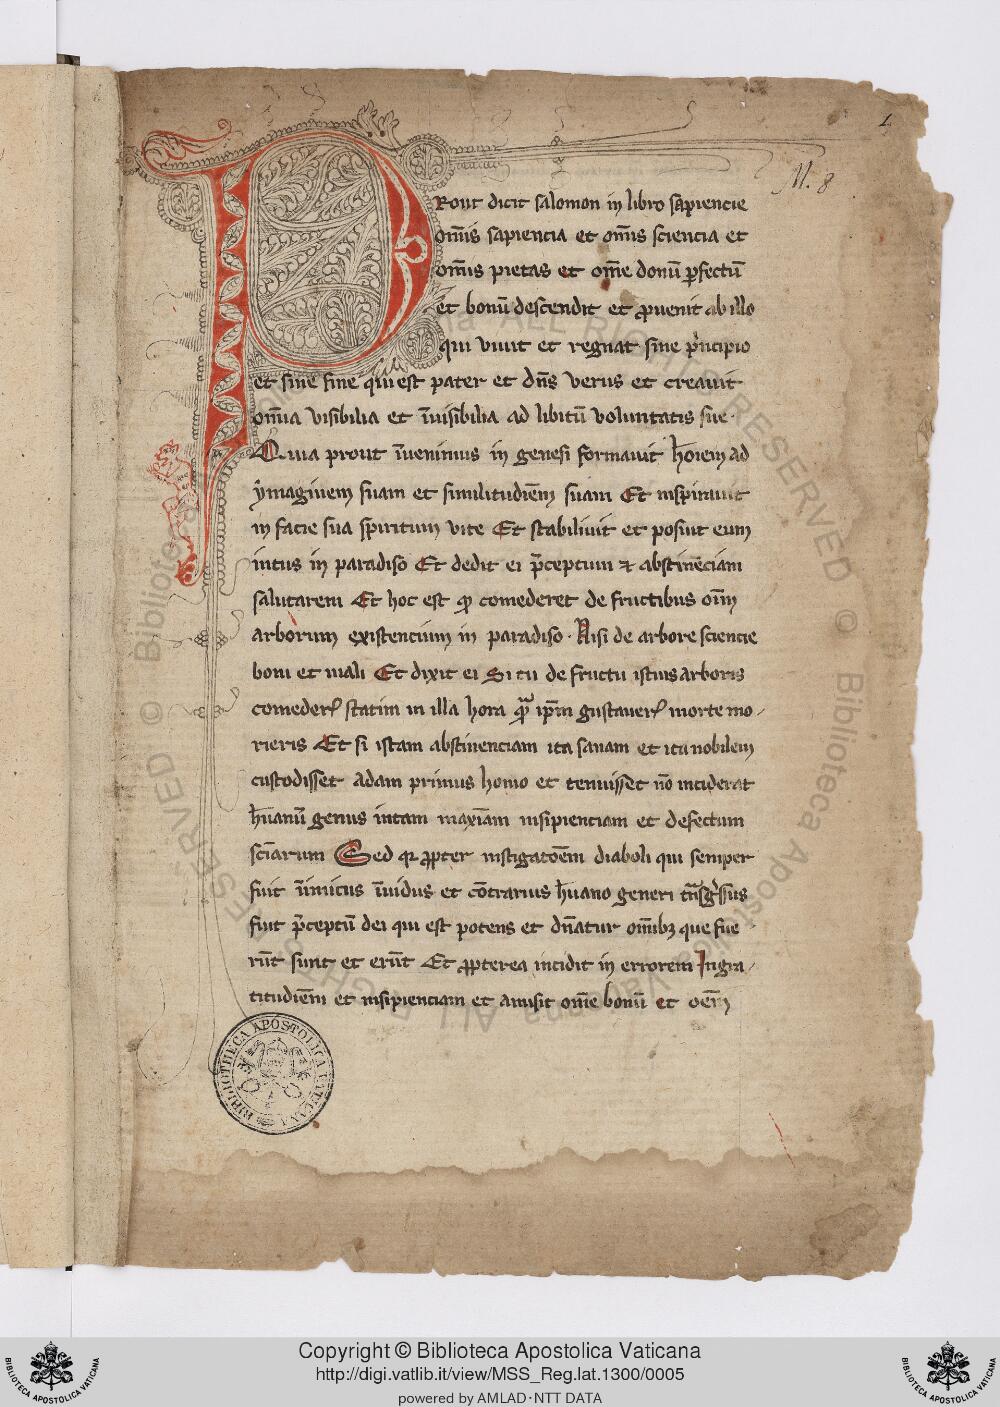 1
M. 8
PRout dicit salomon in libro sapiencie
om̅is sapiencia et om̅is sciencia et
om̅is pietas et om̅e donu̅ ꝑfectu̅
et bonu̅ descendit et ꝓuenit ab illo
qui viuit et regnat sine p̍ncipio
et sine fine qui est pater et dn̅s verus et creauit
om̅ia visibilia et i̅uisibilia ad libitu̅ voluntatis sue·
Quia prout i̅uenimus in genesi formauit ho̅iem ad
ymaginem suam et similitudine̅m suam Et inspirauit
in facie sua spiritum vite Et stabiliuit et posuit eum
intus in paradiso Et dedit ei p̅ceptum ⁊ abstine̅ciam
salutarem Et hoc est ꝙ comederet de fructibus oi̅m
arborum existencium in paradiso· Nisi de arbore sciencie
boni et mali Et dixit ei Si tu de fructu istius arboris
comeder̛ statim in illa hora ip̅m gustauer̛ morte mo
rieris Et si istam abstinenciam ita sanam et ita nobilem
custodisset adam primus homo et tenuisset no̅ inciderat
hu̅anu̅ genus intam maxi̅am insipienciam et defectum
sci̅arum Sed qꝛ ꝓpter instigato̅em diaboli qui semper
fuit i̅imicus i̅uidus et co̅trarius hu̅ano generi
fuit p̅ceptu̅ dei qui est potens et dn̅atur om̅ibꝫ que fue
ru̅t sunt et eru̅t Et ꝓpterea incidit in errorem Ingra
titudine̅m et insipienciam et amisit om̅e bonu̅ et oe̅m
BIBLIOTHECA APOSTOLICA VATICANA
Copyright © Biblioteca Apostolica Vaticana
http://digi.vatlib.it/view/MSS_Reg.lat.1300/0005
powered by AMLAD·NTT DATA
BIBLIOTECA APOSTOLICA VATICANA
BIBLIOTECA APOSTOLICA VATICANA